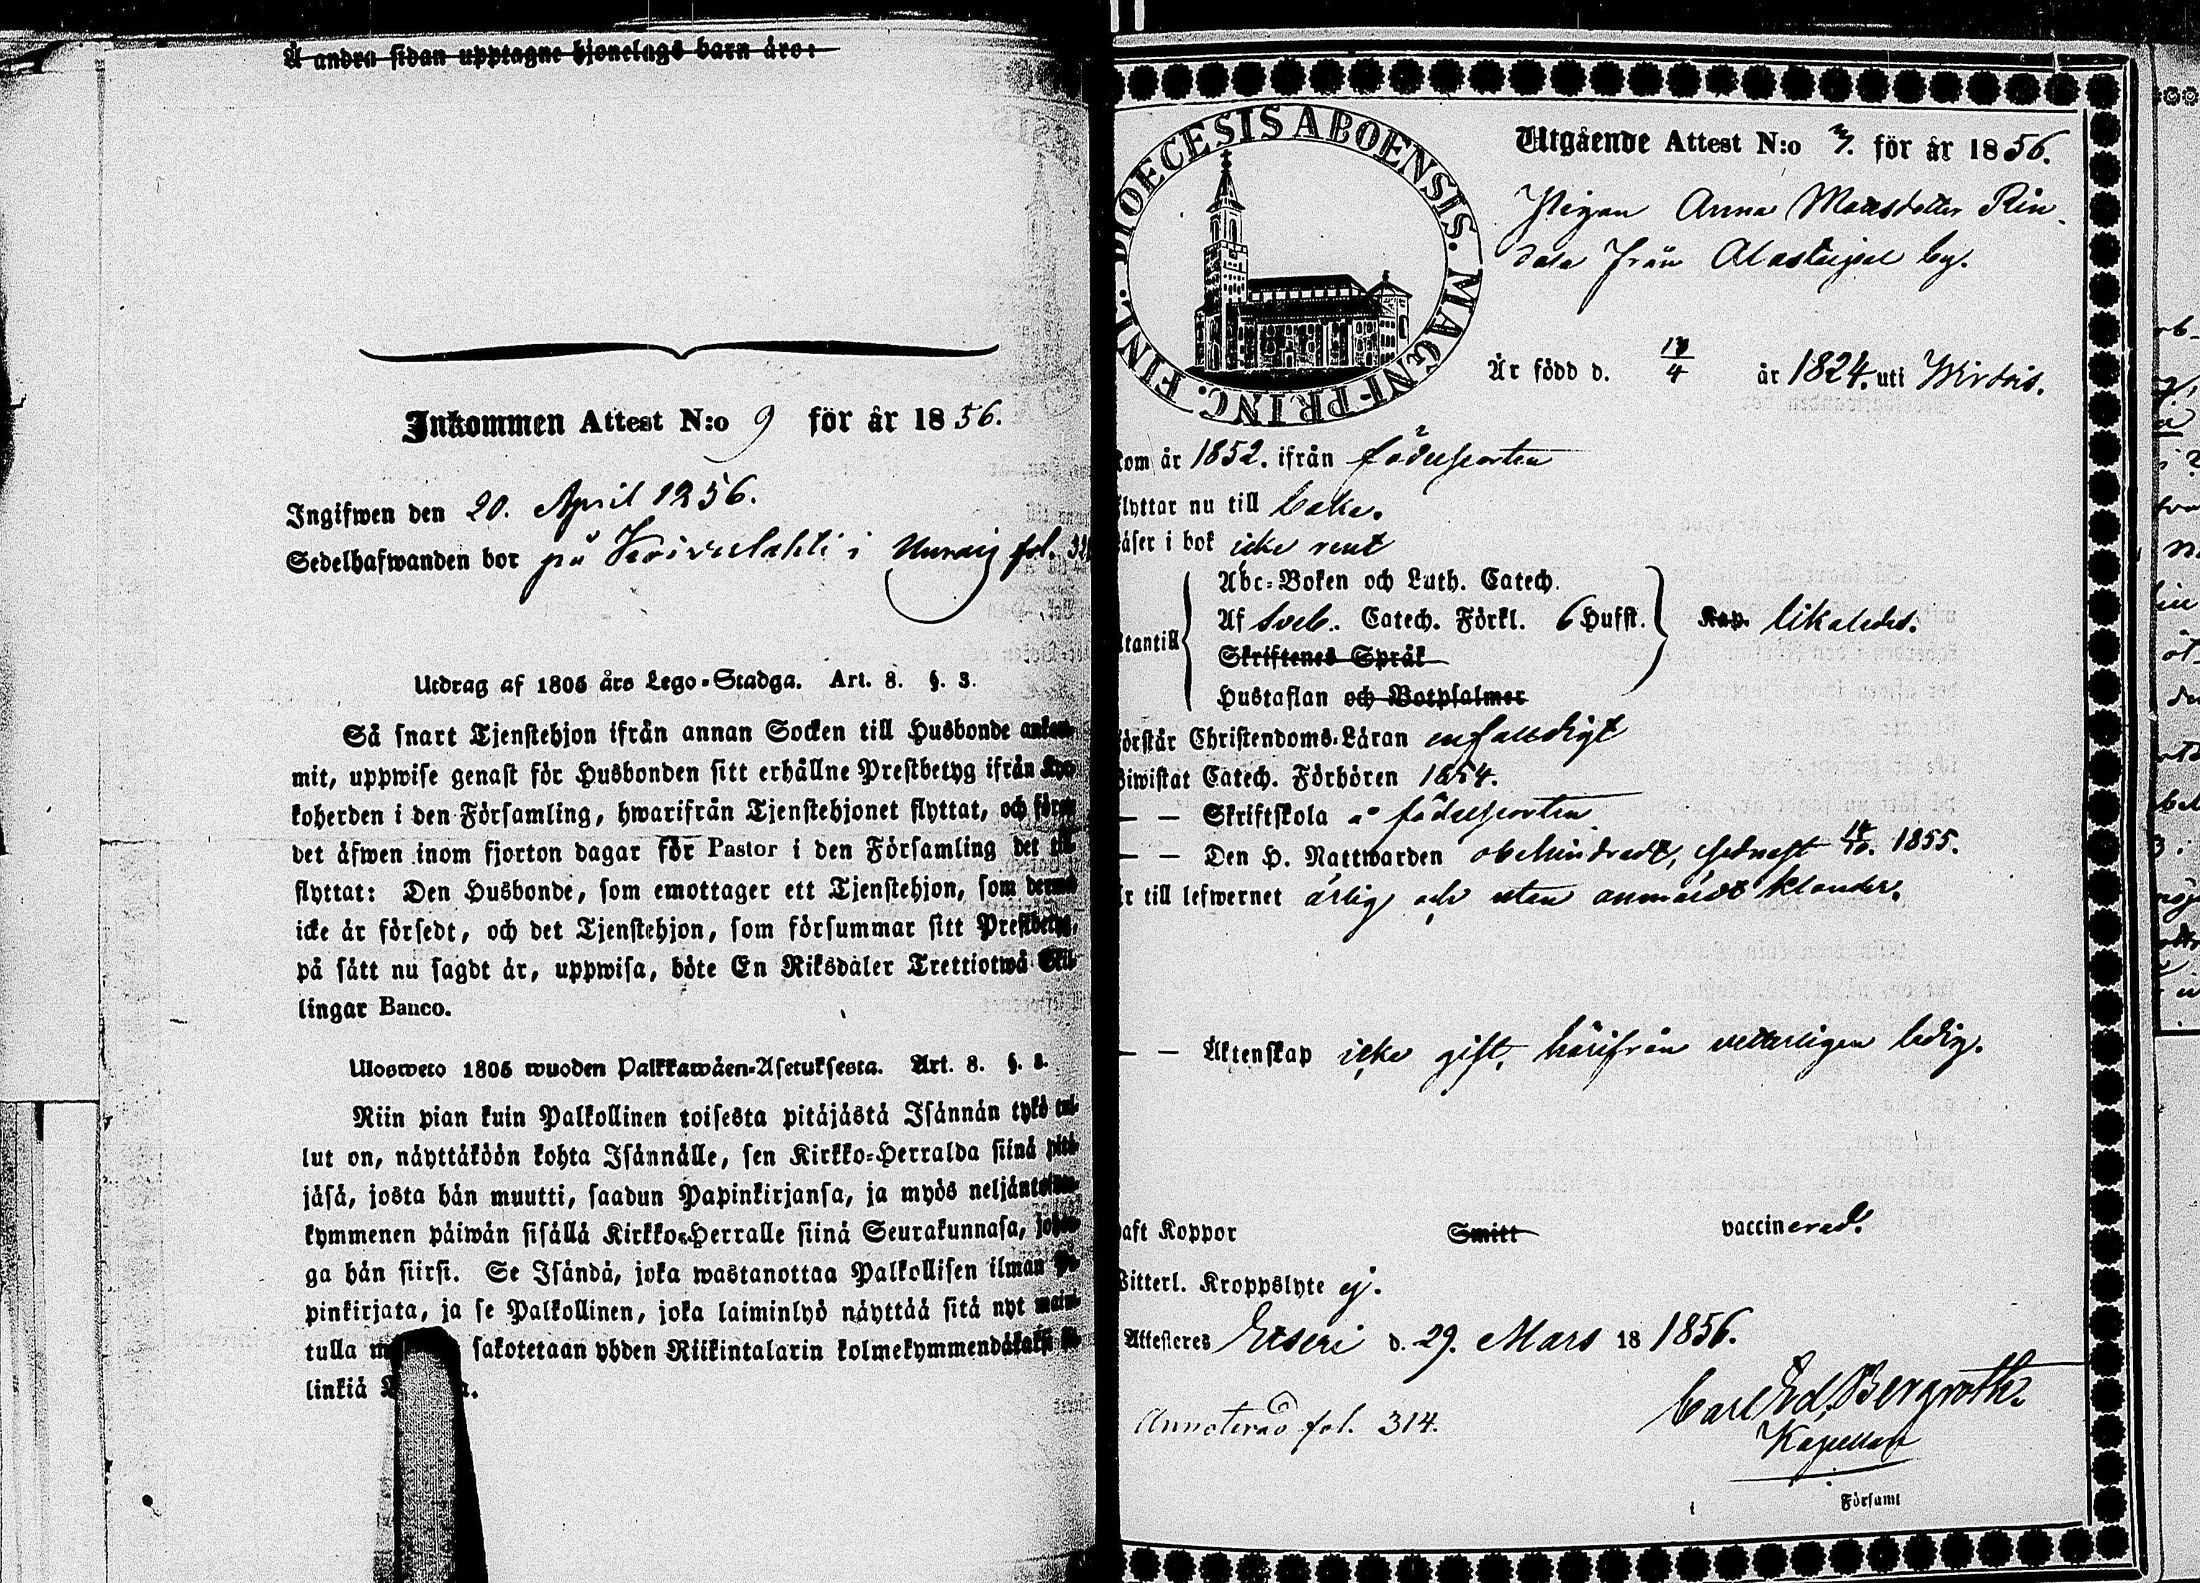 Å andra sidan upptagne hjonelags barn äro:
Inkommen Attest N:o 9 för år 1856.
Ingifwen den 20. April 1856.
Sedelhafwanden bor på Koivulahti i fol.
Utdrag af 1805 års Lego-Stadga. Art. 8. §. 3.
Så snart Tjenstehjon ifrån annan Socken till Husbonde
mit, uppwise genast för Husbonden sitt erhållne Prestbetyg ifrån
koherden i den Församling, hwarifrån Tjenstehjonet flyttat, och
det äfwen inom fjorton dagar för Pastor i den Församling det
flyttat: Den Husbonde, som emottager ett Tjenstehjon, som
icke är försedt, och det Tjenstehjon, som försummar sitt Prestbetyg,
på sätt nu sagdt är, uppwisa, böte En Riksdaler Trettiotwå Skil-
lingar Banco.
Ulosweto 1805 wuoden Palkkawäen-Asetuksesta. Art. 8. §. 3.
Niin pian kuin Palkollinen toisesta pitäjästä Isännän tykö tul-
lut on, näyttäköön kohta Isännälle, sen Kirkko-Herralda siinä pitä-
jäsä, josta hän muutti, saadun Papinkirjansa, ja myös
kymmenen päiwän sisällä Kirkko-Herralle siinä Seurakunnasa,
ga hän siirsi. Se Isändä, joka wastanottaa Palkollisen ilman
pinkirjata, ja se Palkollinen, joka laiminlyö näyttää sitä nyt
tulla sakotetaan yhden Riikintalarin
linkiä
DIOECESIS ABOENSIS. MAGNI PRINC. FINL.
Utgående Attest N:o för år 1856.
Pigan Anna Matsdotter Rin-
dala från Alastaipal by.
Är född d. 4 år 1824. uti Wirdois.
kom år 1852. ifrån födelseorten
flyttar nu till baka.
läser i bok icke rent
Abc-Boken och Luth. Catech.
Af Sveb. Catech. Förkl. 6 Hufst. Kap. likaledes.
utantill
Skriftenes Språk
Hustaflan och Botpsalmer
förstår Christendoms-Läran enfaldigt
Biwistat Catech. Förhören 1854.
— — Skriftskola å födelseorten
— — Den H. Nattwarden obehindradt, sednast 1855.
Är till lefwernet ärlig och utan anmärkt klander.
— — Äktenskap icke gift, härifrån vetterligen ledig.
haft Koppor Smitt vaccinerad.
Witterl. Kroppslyte ej.
Attesteres Etseri d. 29. Mars 18 1856.
Carl Ed. Bergroth
Kapellan
Annoterad fol. 314.
Församl